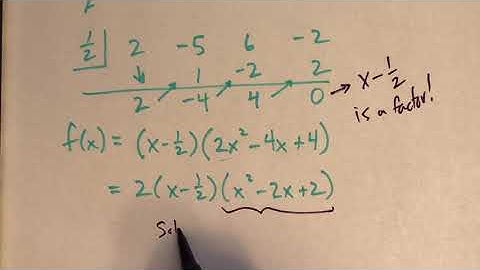 1/2 | 2 -5 6 -2
↓ 1 -2 2
2 -4 4 0 → x - 1/2
is a factor!
f(x) = (x - 1/2)(2x² - 4x + 4)
= 2(x - 1/2)(x² - 2x + 2)